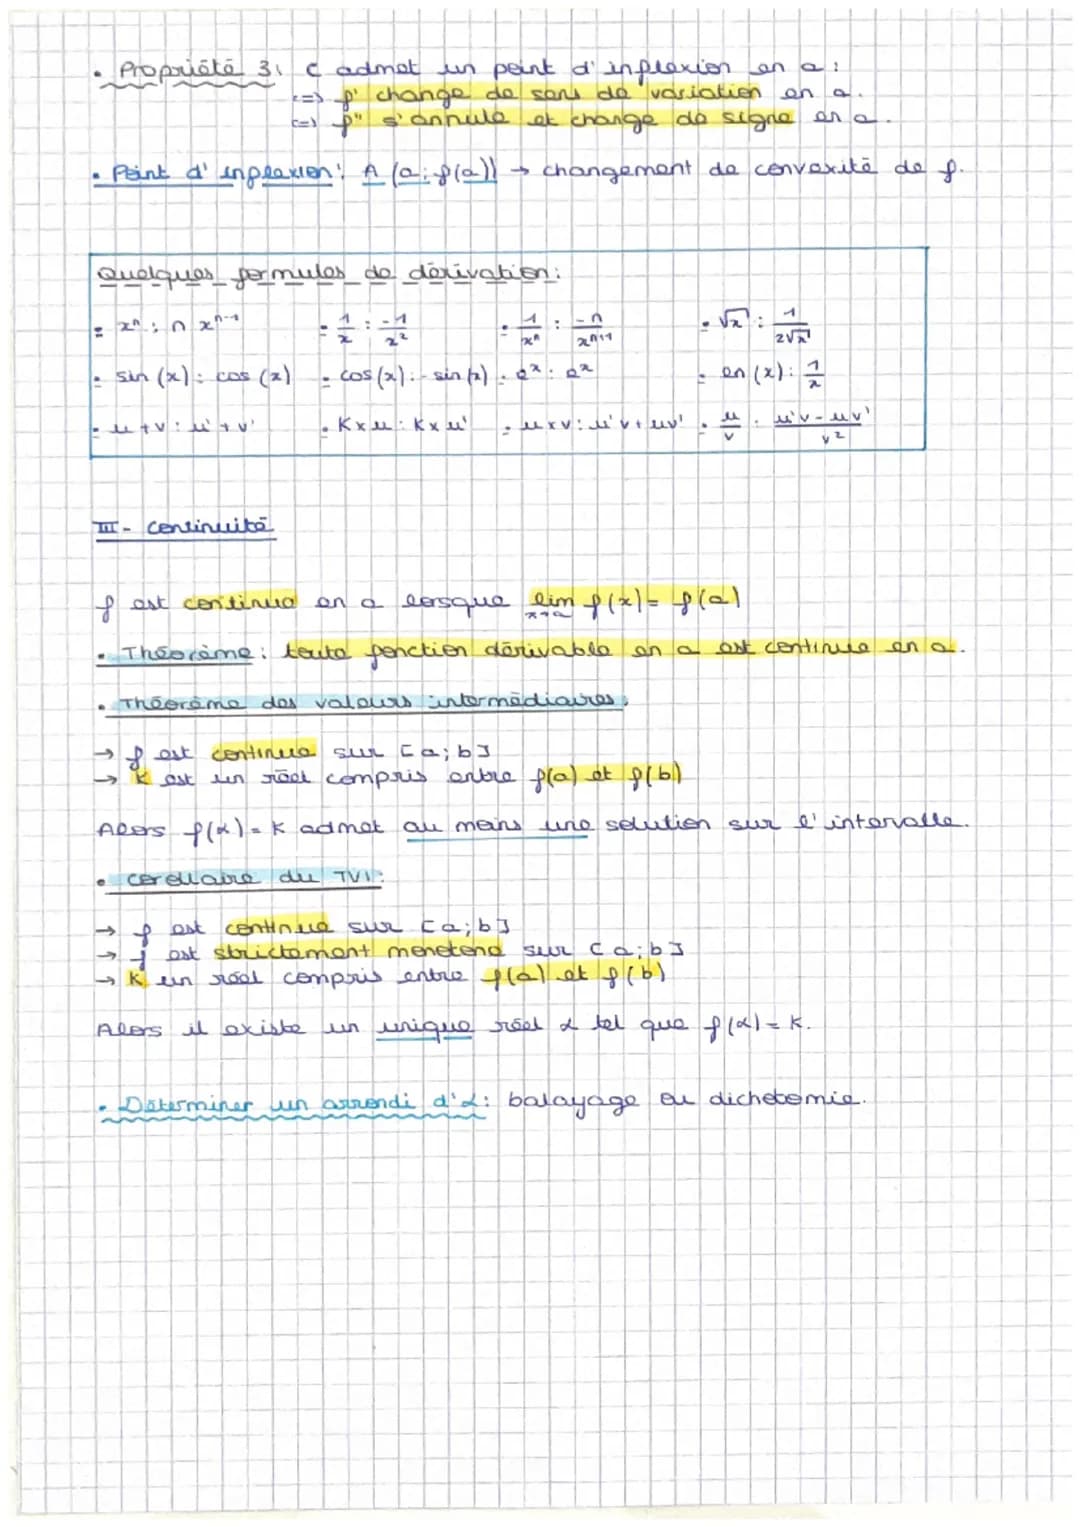 • Propriété 3: C admet un point d'inflexion en a :
<=> f' change de sens de variation en a.
<=> f" s'annule et change de signe en a.
• Point d'inflexion : A (a; f(a)) → changement de convexité de f.
Quelques formules de dérivation :
• xⁿ : n xⁿ⁻¹ • 1/x : -1/x² • 1/xⁿ : -n/xⁿ⁺¹ • √x : 1/2√x
• sin (x) : cos (x) • cos (x) : - sin (x) • eˣ : eˣ • ln (x) : 1/x
• u + v : u' + v' • K x u : K x u' • u x v : u'v + uv' • u/v : u'v - uv'/v²
III - Continuité
f est continue en a lorsque lim x→a f(x) = f(a)
• Théorème : toute fonction dérivable en a est continue en a.
• Théorème des valeurs intermédiaires :
→ f est continue sur [a; b]
→ K est un réel compris entre f(a) et f(b)
Alors f(α) = K admet au moins une solution sur l'intervalle.
• Corollaire du TVI :
→ f est continue sur [a; b]
→ f est strictement monotone sur [a; b]
→ K un réel compris entre f(a) et f(b)
Alors il existe un unique réel α tel que f(α) = K.
• Déterminer un arrondi d'α : balayage ou dichotomie.